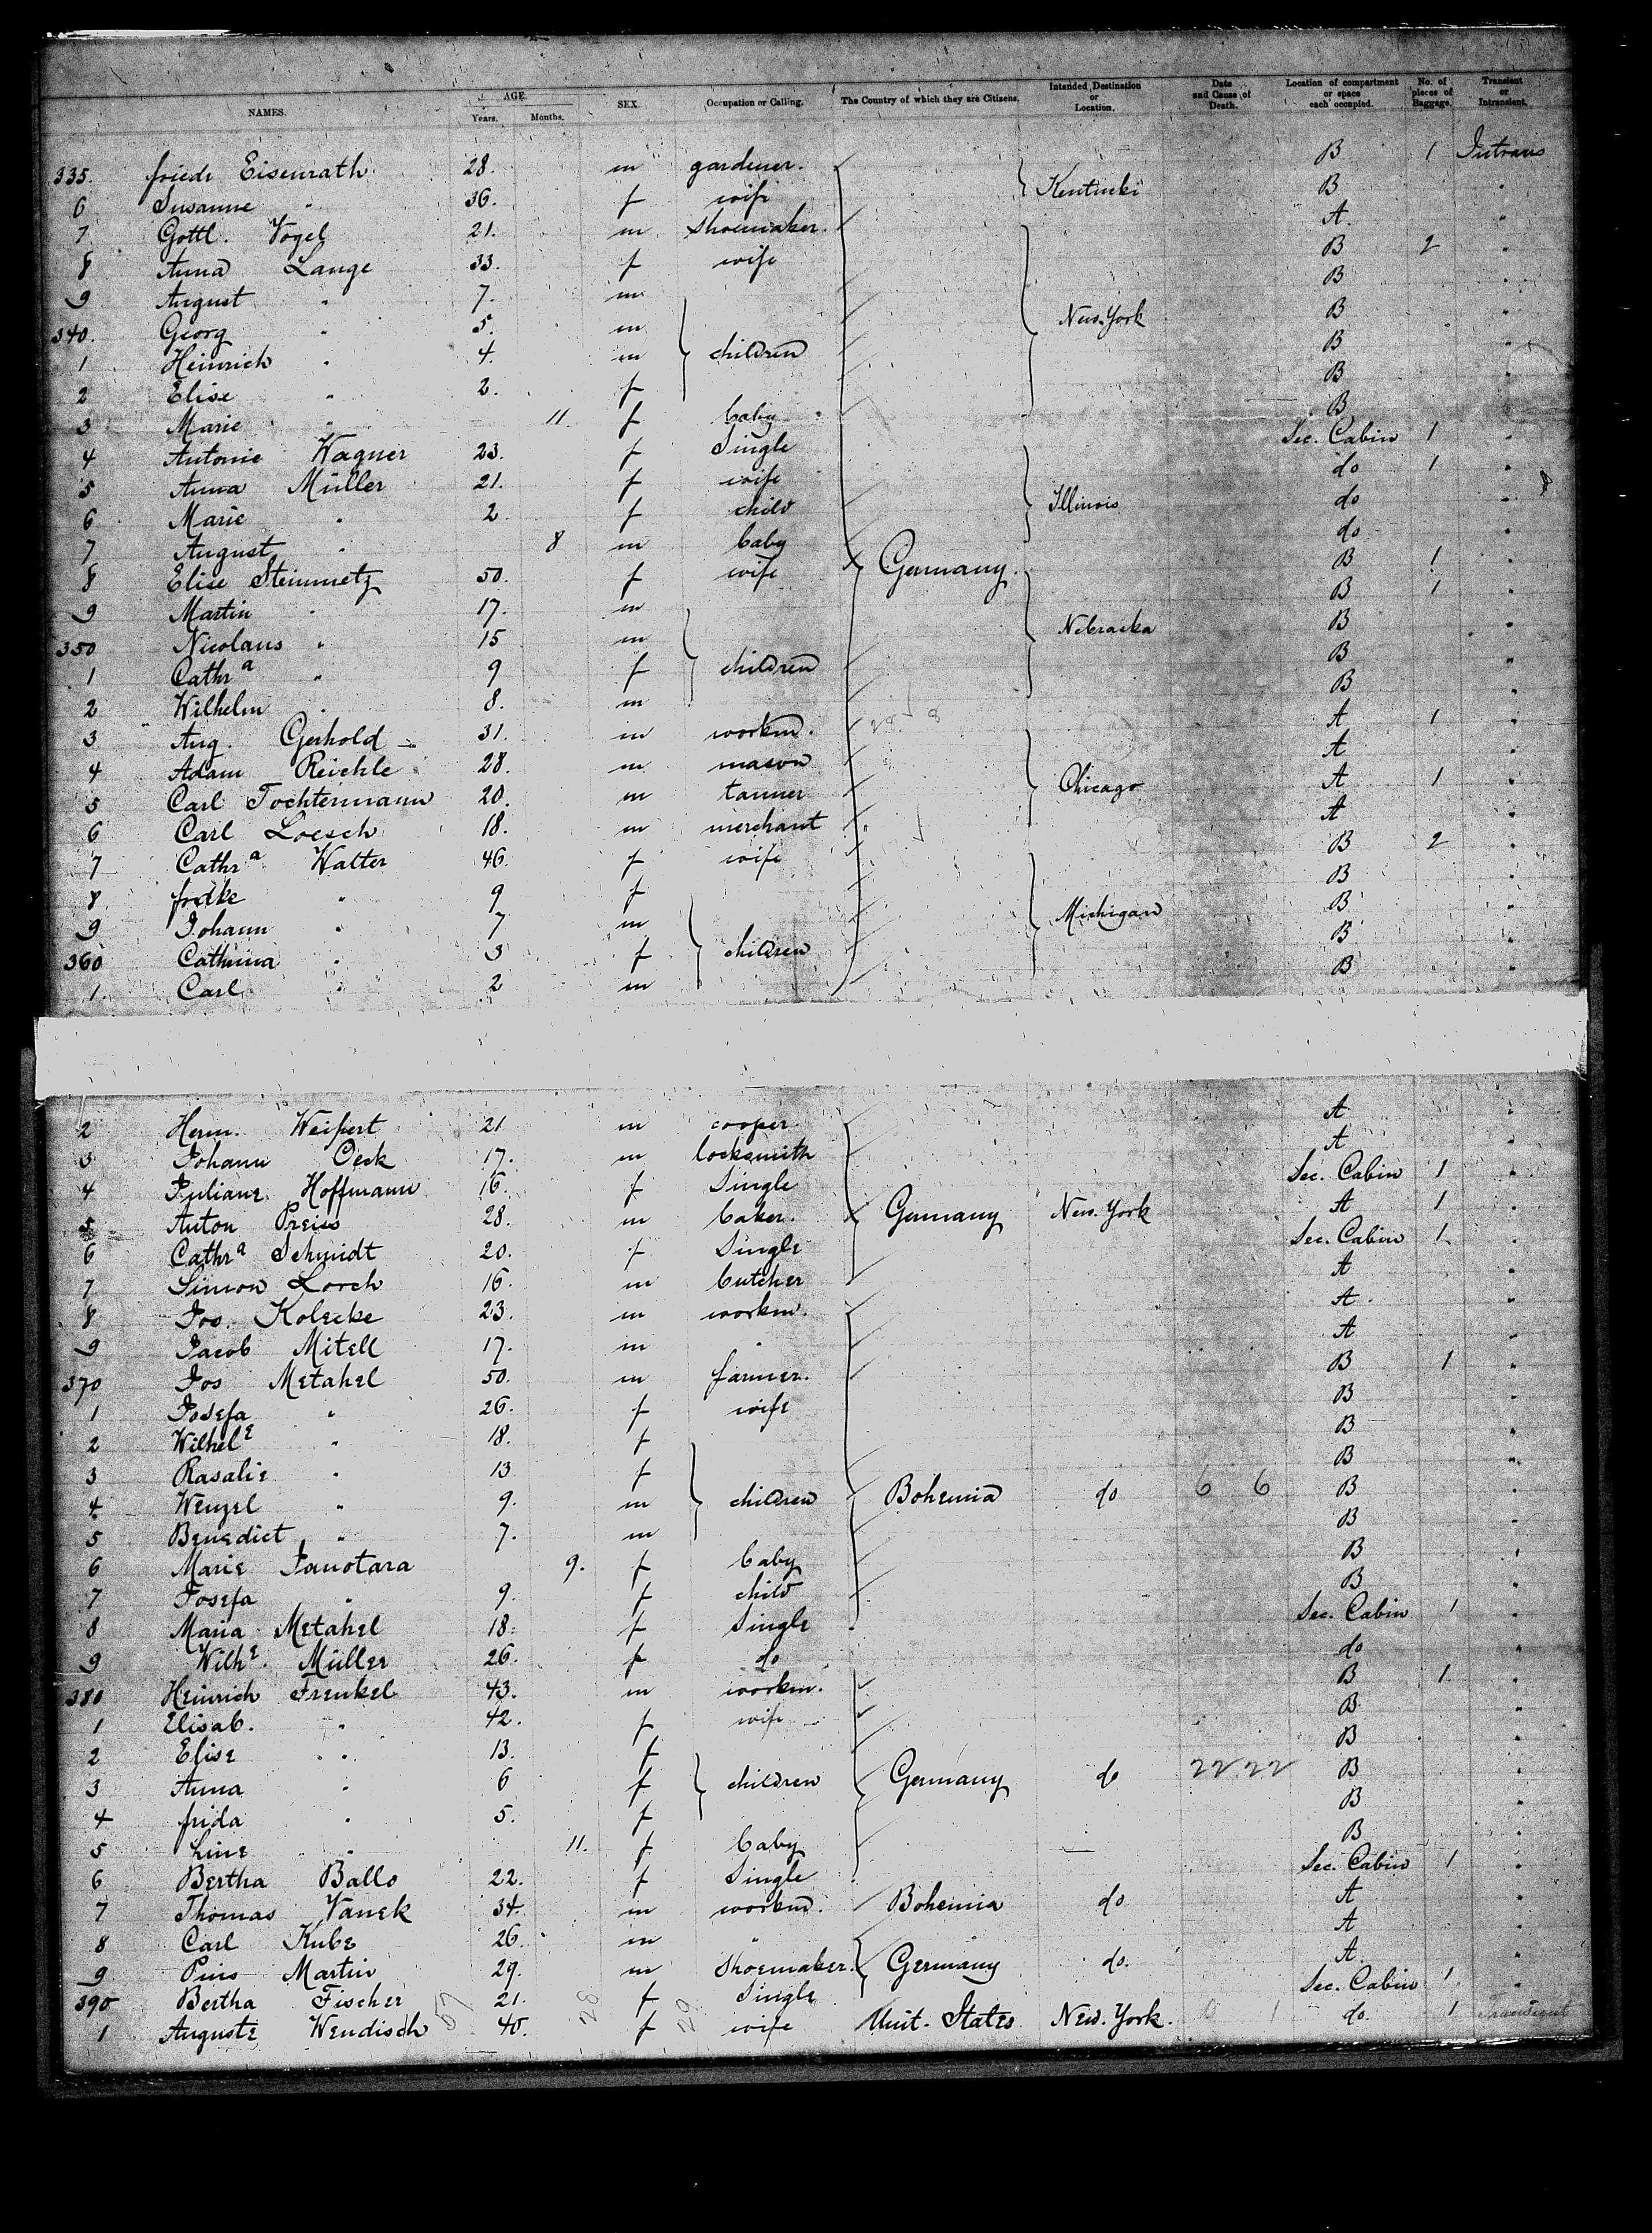 NAMES. AGE. Years. Months. SEX. Occupation or Calling. The Country of which they are Citizens. Intended Destination or Location. Date and Cause of Death. Location of compartment or space each occupied. No. of pieces of Baggage. Transient or Intransient.
335. Friedr Eisenrath 28. m gardener. Kentucki B 1 Intrans
6 Susanne " 36. f wife B "
7 Gottl. Vogel 21. m shoemaker. A. "
8 Anna Lange 33. f wife B 2 "
9 August " 7. m B
340. Georg " 5. m New-York B "
1 Heinrich " 4. m children B "
2 Elise " 2. f B "
3 Marie " 11. f baby B
4 Antonie Wagner 23. f Single Sec. Cabin 1 "
5 Anna Müller 21. f wife do 1 "
6 Marie " 2 f child Illinois do "
7 August " 8 m baby do "
8 Elise Steinmetz 50. f wife Germany. B 1 "
9 Martin " 17. m B 1 "
350 Nicolaus " 15 m Nebraska B "
1 Cathra " 9 f children B "
2 Wilhelm " 8. m B "
3 Aug. Gerhold 31. m workm. A 1 "
4 Adam Reichle 28. m mason A "
5 Carl Tochtermann 20. m tanner Chicago A 1 "
6 Carl Loesch 18. m merchant A "
7 Cathra Walter 46. f wife B 2 "
8. fridke " 9 f B "
9 Johann " 7 m Michigan B "
360 Cathrina " 3 f children B "
1. Carl " 2 m B "
2 Herm. Weifert 21 m cooper. A "
3 Johann Oeck 17. m locksmith A
4 Juliane Hoffmann 16. f Single Sec. Cabin 1 "
5 Anton Preiss 28. m baker. Germany New-York A 1 "
6 Cathra Schmidt 20. f Single Sec. Cabin 1. "
7 Simon Lorch 16. m butcher A "
8 Jos. Kolecke 23. m workm. A. "
9 Jacob Mitell 17. m " A "
370 Jos Metahel 50. m farmer. B 1 "
1 Josefa " 26. f wife B "
2 Wilhele " 18. f B "
3 Rasalie " 13 f B "
4 Wenzel " 9. m children Bohemia do 6 6 B "
5 Benedict " 7. m B "
6 Marie Janotara 9. f baby B "
7 Josefa " 9. f child B "
8 Maria Metahel 18. f Single Sec. Cabin 1 "
9 Wilhe. Müller 26. f do do "
380 Heinrich Frenkel 43. m workm. B 1. "
1 Elisab. " 42. f wife B "
2 Elise " 13. f B "
3 Anna " 6 f children Germany do 22 22 B "
4 frida " 5. f B "
5 Line " 11. f baby B "
6 Bertha Ballo 22. f Single Sec. Cabin 1 "
7 Thomas Vanek 34. m workm. Bohemia do A "
8 Carl Kube 26. m " A "
9 Pius Martin 29. m Shoemaker. Germany do. A. "
390 Bertha Fischer 21. f Single Sec. Cabin 1 "
1 Auguste Wendisch 40. f wife Unit. States New-York. 0 1 do 1 Transient